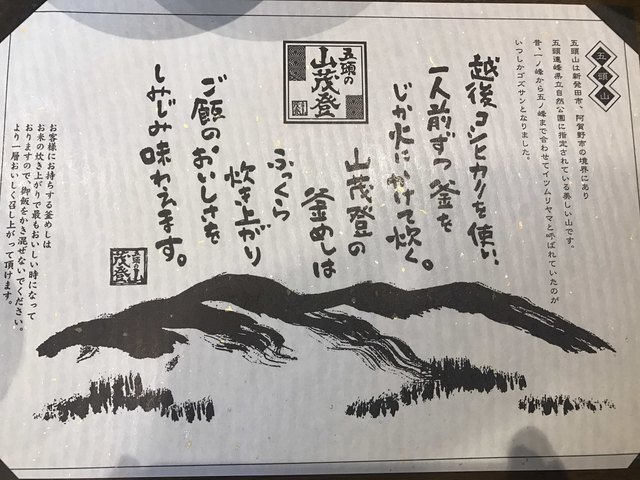 五頭山
五頭山は新発田市、阿賀野市の境界にあり
五頭連峰県立自然公園に指定されている美しい山です。
昔、一ノ峰から五ノ峰まで合わせてイツムリヤマと呼ばれていたのが
いつしかゴズサンとなりました。
越後コシヒカリを使い、
一人前ずつ釜を
じか火にかけて炊く。
山茂登の
釜めしは
ふっくら
炊き上がり
ご飯のおいしさを
しみじみ味わえます。
五頭の
山茂登
五頭の山
茂登
お客様にお持ちする釜めしは
お米の炊き上がりで最もおいしい時になって
おりますので、御飯をかき混ぜないでください。
より一層おいしく召し上がって頂けます。